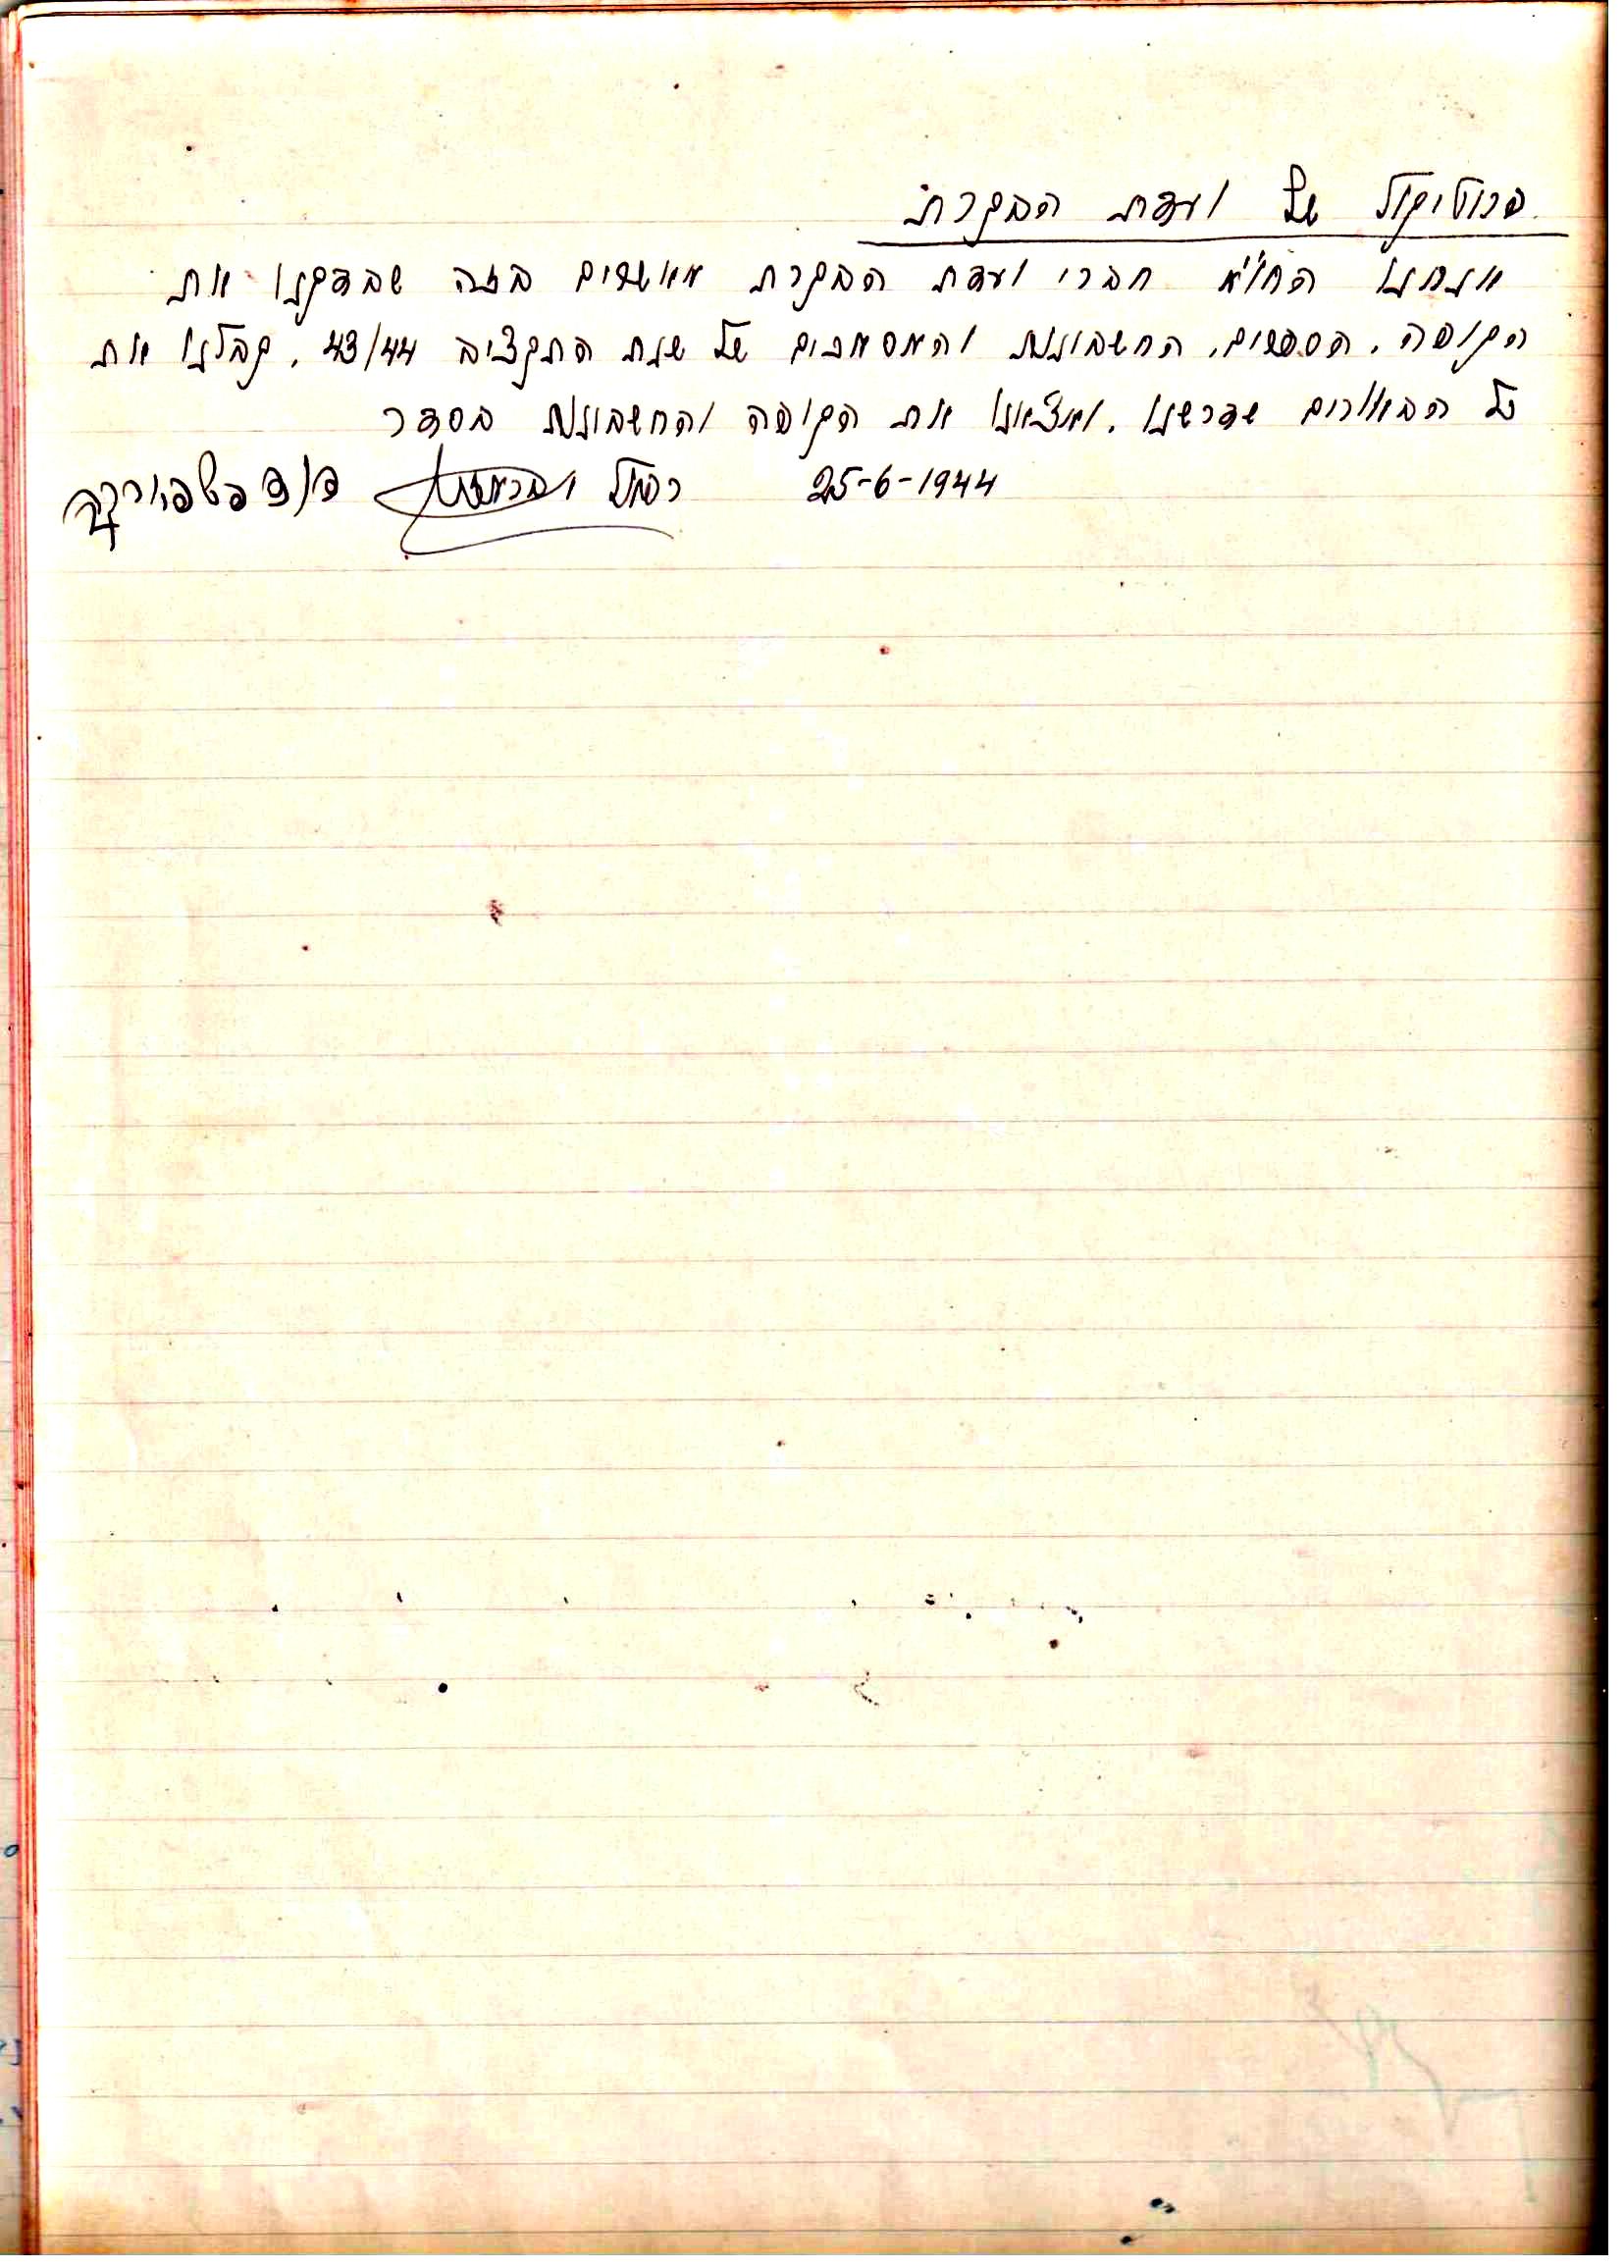 פרוטיקול של ועדת הבקרת
אנחנו הח"מ חברי ועדת הבקרת מאשרים בזה שבדקנו את
הקופה, הספרים, החשבונות והמסמכים של שנת התקציב 43/44, קבלנו את
כל הבאורים שדרשנו, ומצאנו את הקופה והחשבונות בסדר
25-6-1944